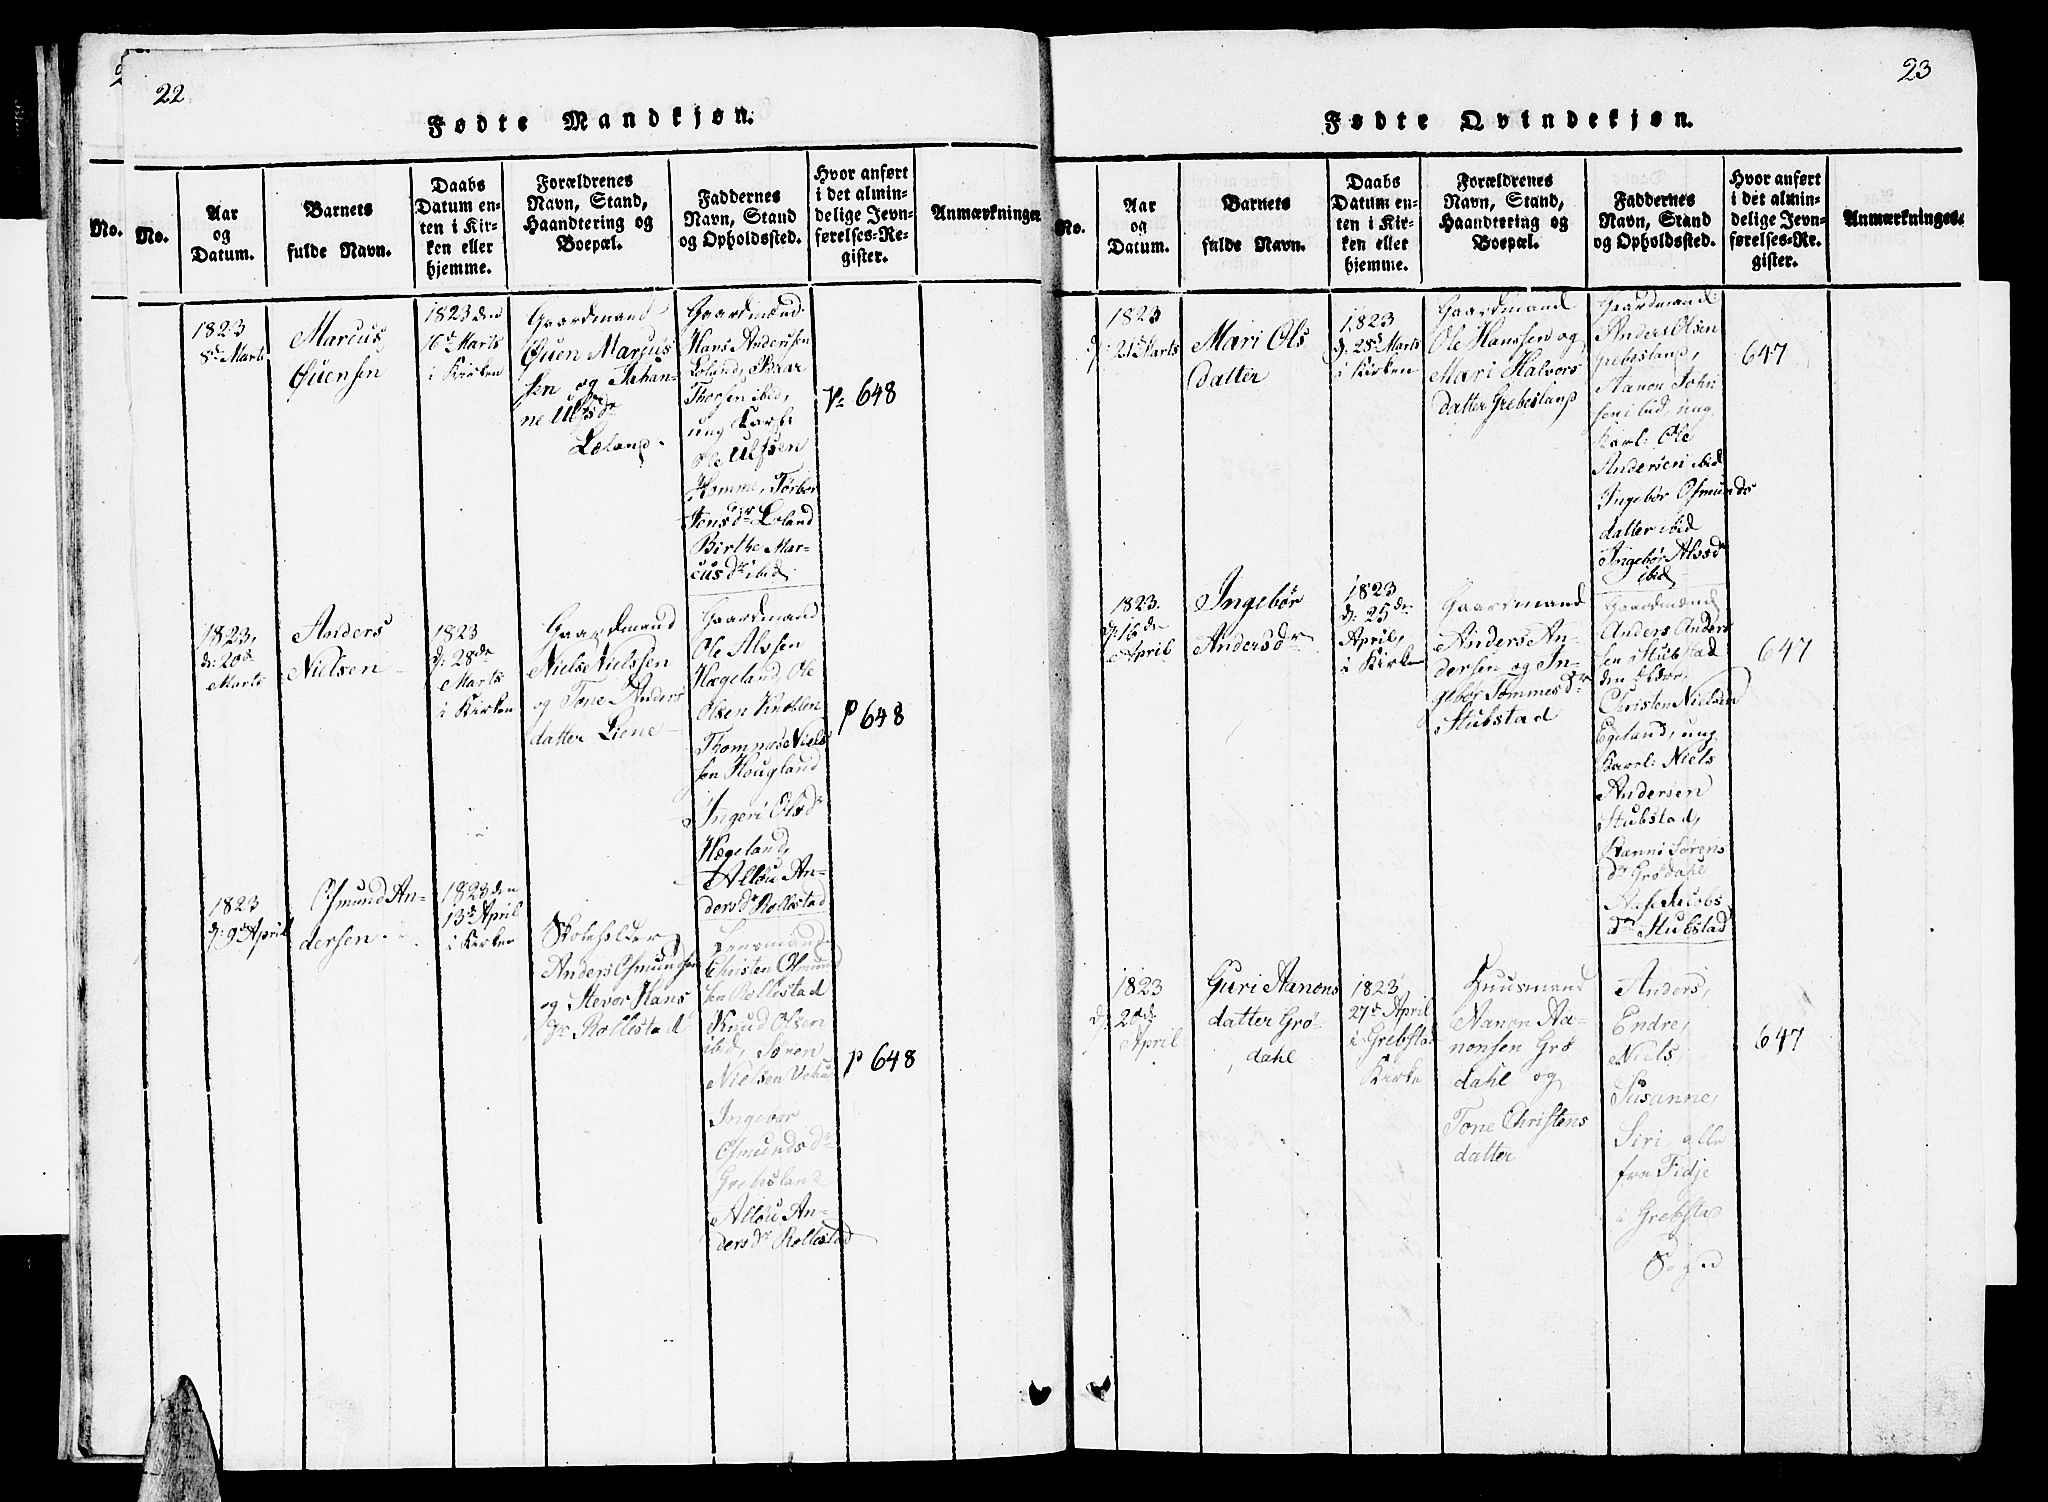 22
Fødte Mandkjøn.
No.
No.
Aar
og
Datum.
Barnets
fulde Navn.
Daabs
Datum en-
ten i Kir-
ken eller
hjemme.
Forældrenes
Navn, Stand,
Haandtering og
Boepæl.
Faddernes
Navn, Stand
og Opholdssted.
Hvor anført
i det almin-
delige Jevn-
førelses-Re-
gister.
Anmærkninger
1823
8d Marts
Marcus
Øuensen
1823 den
16d Marts
i Kirken
Gaardmand
Øuen Marcus
sen og Johan-
ne Ulfsdr
Løland
Gaardmænd
Hans Andersen
Loland,
Thorsen ibid,
ung Karl
Ole Ulfsen
Homme, Torbor
Jensdr Loland
Birthe Mar-
cusdr ibid
648
1823,
d: 20de
Marts
Anders
Nielsen
1823
d: 28de
Marts
i Kirken
Gaardmand
Niels Nielssen
og Tone Anders
datter Liene
Gaardmand
Ole Alssen
Hægeland, Ole
Olsen
Thommas Niels
sen Hougland
Ingeri Olsdr
Hægeland,
Allou An-
dersdr Rollestad
p 648
1823
d: 9d April
Osmund An-
dersen
1823 den
13d April
i Kirken
Skoleholder
Anders Osmundsen
og Stevor Hans
dr Rollestad
Lensmand
Christen Osmund
sen Rollestad
Knud Olsen
ibid, Søren
Nielsen
Ingebor
Osmundsdr
Grebesland
Allou An-
dersdr Rollestad
p 648
23
Fødte Qvindekjøn.
No.
Aar
og
Datum.
Barnets
fulde Navn.
Daabs
Datum en-
ten i Kir-
ken eller
hjemme.
Forældrenes
Navn, Stand,
Haandtering og
Boepæl.
Faddernes
Navn, Stand
og Opholdssted.
Hvor anført
i det almin-
delige Jevn-
førelses-Re-
gister.
Anmærkninger.
1823
d: 21d Marts
Mari Ols
datter
1823
d: 28d Marts
i Kirken
Gaardmand
Ole Hanssen og
Mari Halvors
datter Grebesland
Gaardmænd
Anders Olsen
Grebesland,
Aanon John
sen ibid, ung
Karl: Ole
Andersen ibid
Ingebør Osmunds
datter ibid
Ingebør Alsdr
ibid
647
1823.
d: 16de
April
Ingebør
Andersdr
1823
d: 25de
April,
i Kirken
Gaardmand
Anders An-
dersen og In-
gebør Tommesdr
Stubstad
Gaardmænd
Anders Anders
sen Stubstad
den ældre,
Christen Nielsen
Egeland, ung
Karl: Niels
Andersen
Stubstad,
Ranni Sørens
dr Grødahl
Aase Jacobs
dr Stubstad
647
1823
d: 20de
April
Guri Aanons
datter Grø-
dahl
1823
27d April
i Grebstad
Kirke
Huusmand
Aanon Aa-
nonsen Grø
dahl og
Tone Christens
datter
Anders,
Endre,
Niels,
Susanne,
Siri, alle
fra Fidje
i Grebstad
Sogn
647